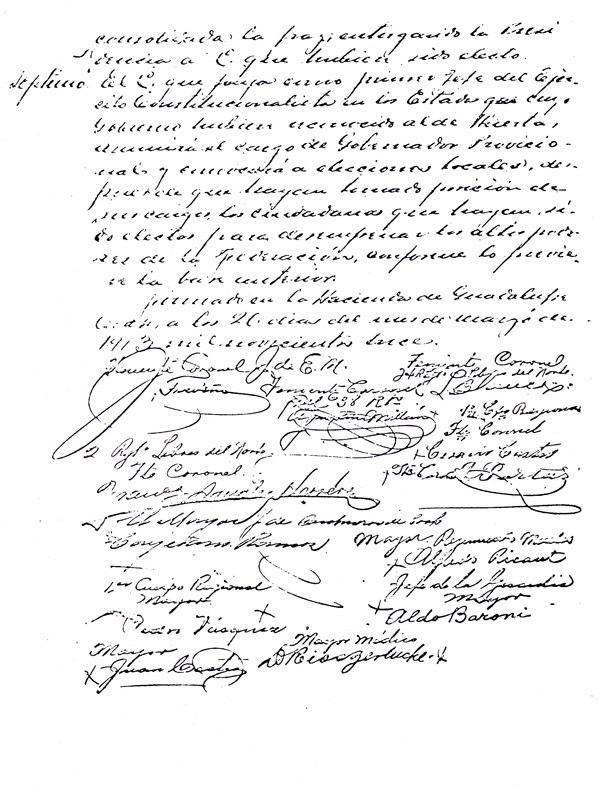 consolidada la paz, entregando la Presi
dencia a C. que hubiera sido electo.
Septimo El C. que funja como primer Jefe del Ejer
cito Constitucionalista en los Estados que cuyo
Gobierno hubieren reconocido al de Huerta,
asumirá el cargo de Gobernador Provicio
nal y convocará a elecciones locales, des-
pues de que hayan tomado posición de
sus cargos los ciudadanos que hayan si-
do electos para desempeñar los altos pode-
res de la Federación, conforme lo previe-
ne la base anterior.
Firmado en la Hacienda de Guadalupe
Coah, a los 26 dias del mes de marzo de
1913 mil novecientos trece.
Teniente Coronel J. de E. M.
Treviño
Teniente Coronel
del 38 Rto
Teniente Coronel
L Blanco
2 Cpo Regional
Tte Coronel
Cesario Castro
2 Regto Libres del Norte
Tte Coronel
Tte Coronel
El Mayor J de
Cayetano Ramos
Mayor
Alfredo Ricaut
1er Cuerpo Regional
Mayor
Jefe de la
Mayor
Aldo Baroni
Pedro Vásquez
Mayor
Juan Castro
Mayor Médico
D Rios Zertuche